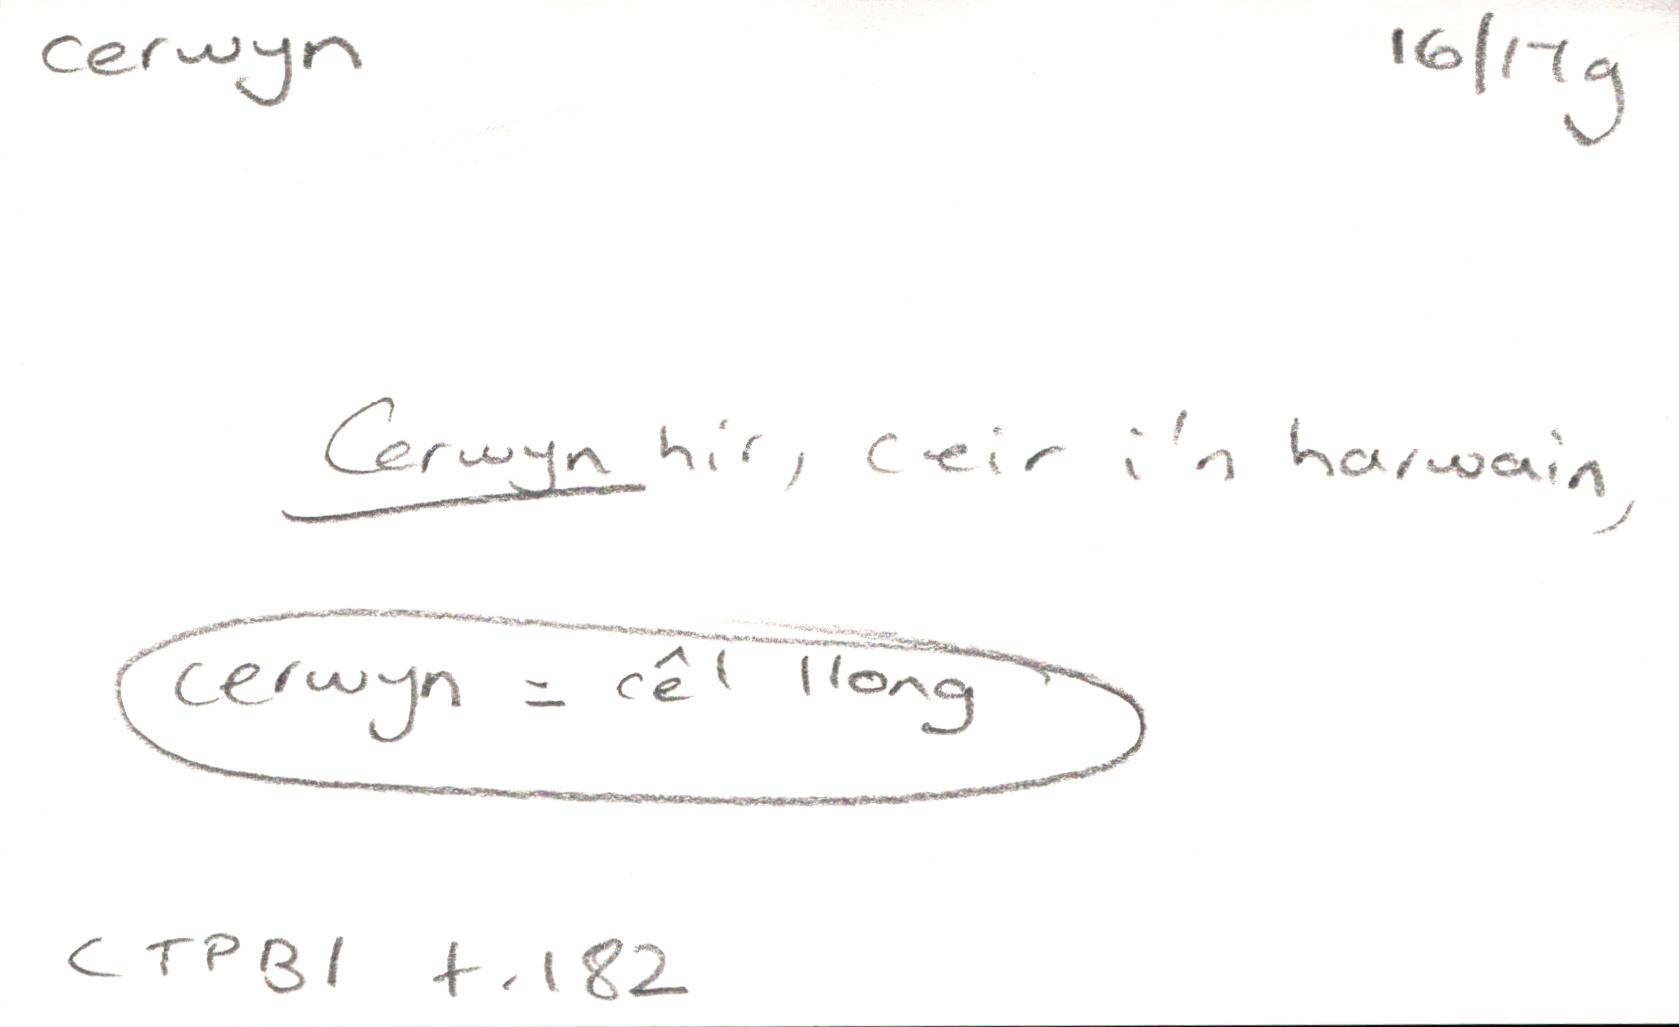 cerwyn 16/17g
Cerwyn hir, ceir i'n harwain,
cerwyn = cêl llong
CTPB1 t.182